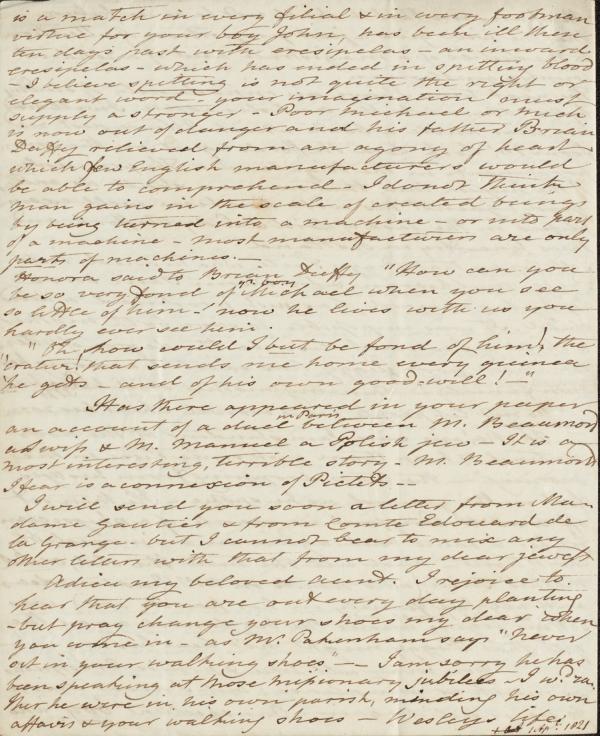 is a match in every filial & in every footman
virtue for your boy John, has been ill these
ten days past with eresipelas - an inward
eresipelas - which has ended in spitting blood
- I believe spitting is not quite the right or
elegant word - your imagination must
supply a stronger - Poor Michael or Mich
is now out of danger and his father Brian
Duffy relieved from an agony of heart
which few English manufacturers would
be able to comprehend - I do not think
man gains in the scale of created beings
by being turned into a machine - or into part
of a machine - most manufacturers are only
parts of machines. -
Honora said to Brian Duffy "How can you
be so very fond of yr. boy Michael when you see
so little of him - now he lives with us you
hardly ever see him.
"Oh, how would I but be fond of him! the
'cratur' that sends me home every guinea
he gets - and of his own good-will! -"
Has there appeared in your paper
an account of a duel in Paris between M. Beaumont
a Swiss & M. Manuel a Polish jew - It is a
most interesting, terrible story - M. Beaumont
I fear is a connexion of Pictets --
I will send you soon a letter from Ma-
dame Gautier & from Comte Edouard de
la Grange - but I cannot bear to mix any
other letters with that from my dear jewess
Adieu my beloved aunt. I rejoice to
hear that you are out every day planting
- but pray change your shoes my dear when
you come in - as Mr. Pakenham says "Never
sit in your walking shoes" -- I am sorry he has
been speaking at those missionary jubilees - I wd. ra-
ther he were in his own parish, minding his own
affairs & your walking shoes - Wesleys life
1821